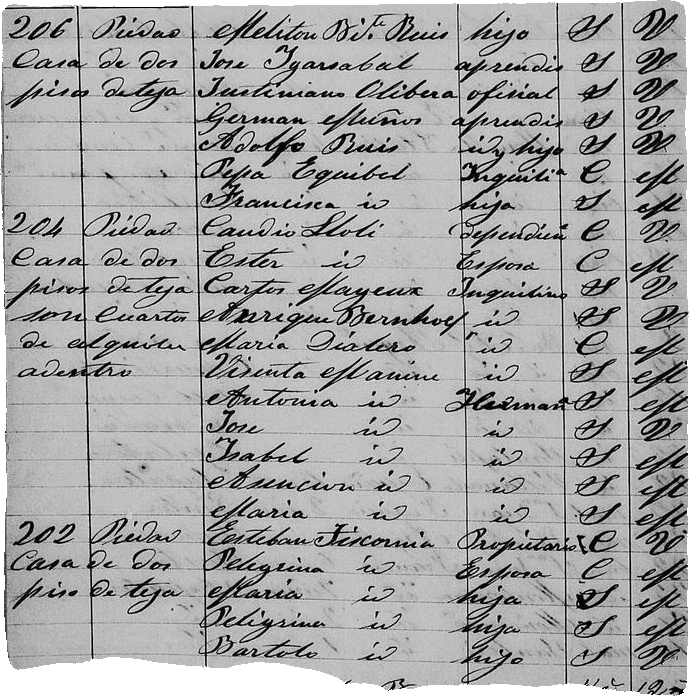 206 Piedad Meliton Bi.ta Ruis hijo S V
Casa de dos Jose Ygarsabal aprendis S V
pisos de teja Justiniano Olibera ofisial S V
German Muños aprendis S V
Adolfo Ruis id y hijo S V
Pepa Equibel Ynquilia C M
Francisca id hija S M
204 Piedad Caudio Lloli dependien C V
Casa de dos Ester id Esposa C M
pisos de teja Carlos Mayeux Ynquilino S V
son Cuartos Anrique id S V
de alquiler Maria id C M
adentro Visenta Manine id S M
Antonia id Herman S M
Jose id id S V
Isabel id id S M
Asencion id id S M
Maria id id S M
202 Piedad Esteban Fiscornia Propietario C V
Casa de dos Pelegrina id Esposa C M
piso de teja Maria id hija S M
Peligrina id hija S M
Bartolo id hijo S V